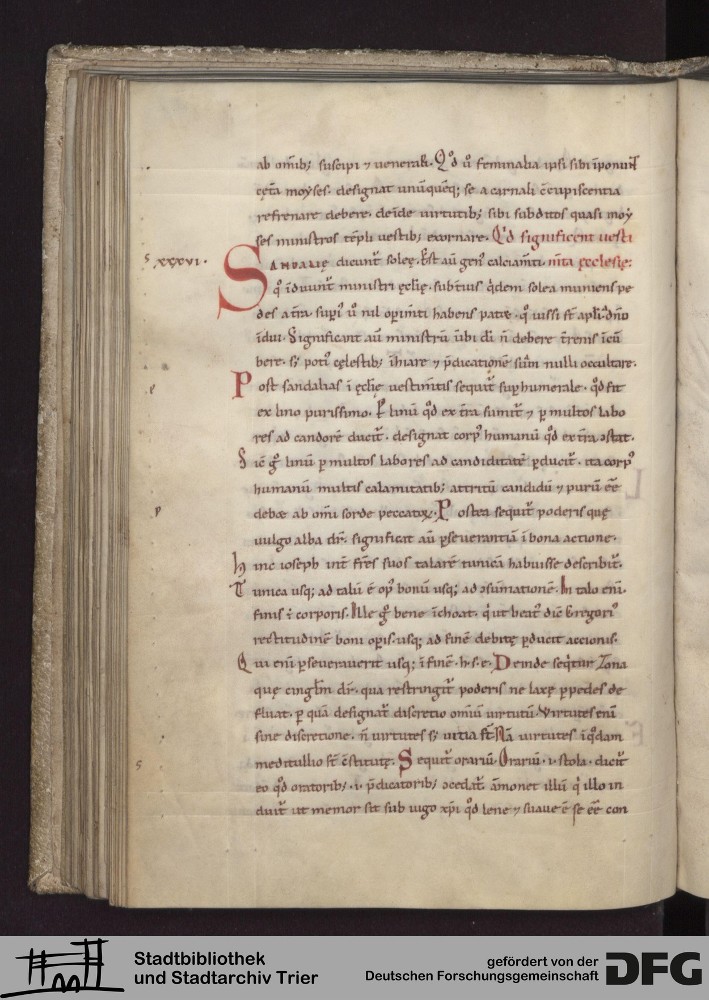 ab omib; suscipi ⁊ venerari. Qd ū feminalia ipsi sibi iponunt
cęta moyses. designat unūquēq; se a carnali cōcupiscentia
refrenare debere. deīde virtutib; sibi subditos quasi moy
ses ministros tēpli vestib; exornare. Qd significent vesti
s xxxvi.
Sandalię dicunt̄ soleę. Est aū gen᷒ calciam̄ti. mīta ęcclesię:
q᷒ iduunt̄ ministri ęclię. subtius qdem solea muniens pe
des a tra. supi᷒ ū nil opim̄ti habens patet. q᷒ iussi st apli a dno
idui. Significant aū ministrū ūbi di n debere trenis icū
bere. sȝ poti᷒ cęlestib; ihiare ⁊ pdicationē suam nulli occultare.
Post sandalias i ęclię vestim̄tis sequit̄ suphumerale. qd fit
ex lino purissimo. P linū qd ex tra sumit̄ ⁊ p multos labo
res ad candorē ducit̄. designat corp᷒ humanū qd ex tra ɔstat.
Sic g᷒ linū p multos labores ad candiditatē pducit̄. ita corp᷒
humanū multis calamitatib; attritū candidū ⁊ purū ēē
debet ab omi sorde peccatoꝝ. Postea sequit̄ poderis quę
vulgo alba dr. significat aū pseverantiā i bona actione.
hinc ioseph int frēs suos talarē tunicā habuisse describit̄.
Tunica usq; ad talū ē op᷒ bonū usq; ad ɔsūmationē. In talo eni.
finis ē corporis. Ille g᷒ bene ichoat. q ut beat᷒ dic Gregori᷒
rectitudinē boni opis. usq; ad finē debitę pducit accionis.
Qui eni pseveraverit usq; i finē. h. s. e. Deinde seqtur Zona
quę cingłm dr. qua restringit̄ poderis ne laxę p pedes de
fluat. p quā designat̄ discretio omiū virtutū. Virtutes eni
sine discretione. n virtutes sȝ vitia st. Nā virtutes i qdam
meditullio st cstitutę. Sequit̄ orariū. Orariū .i. stola. dicit̄
eo qd oratorib; .i. pdicatorib; ɔcedat̄. āmonet illū q illo in
duit̄ ut memor sit sub iugo xpi qd lene ⁊ suave ē se ēē con
Stadtbibliothek
und Stadtarchiv Trier
gefördert von der
Deutschen Forschungsgemeinschaft
DFG